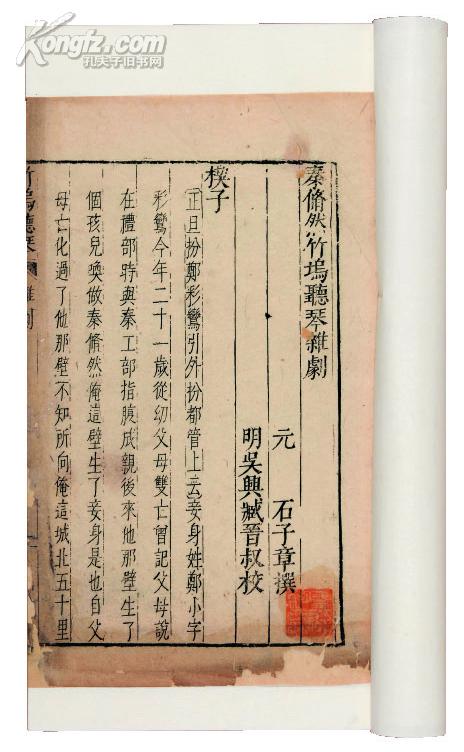 Kongfz.com
孔夫子旧书网
秦翛然竹塢聽琴雜劇
元 石子章撰
明吳興臧晉叔校
楔子
正旦扮鄭彩鸞引外扮都管上云妾身姓鄭小字
彩鸞今年二十一歲從幼父母雙亡曾記父母說
在禮部時與秦工部指腹成親後來他那壁生了
個孩兒喚做秦翛然俺這壁生了妾身是也自父
母亡化過了他那壁不知所向俺這城北五十里
竹塢聽琴 雜劇